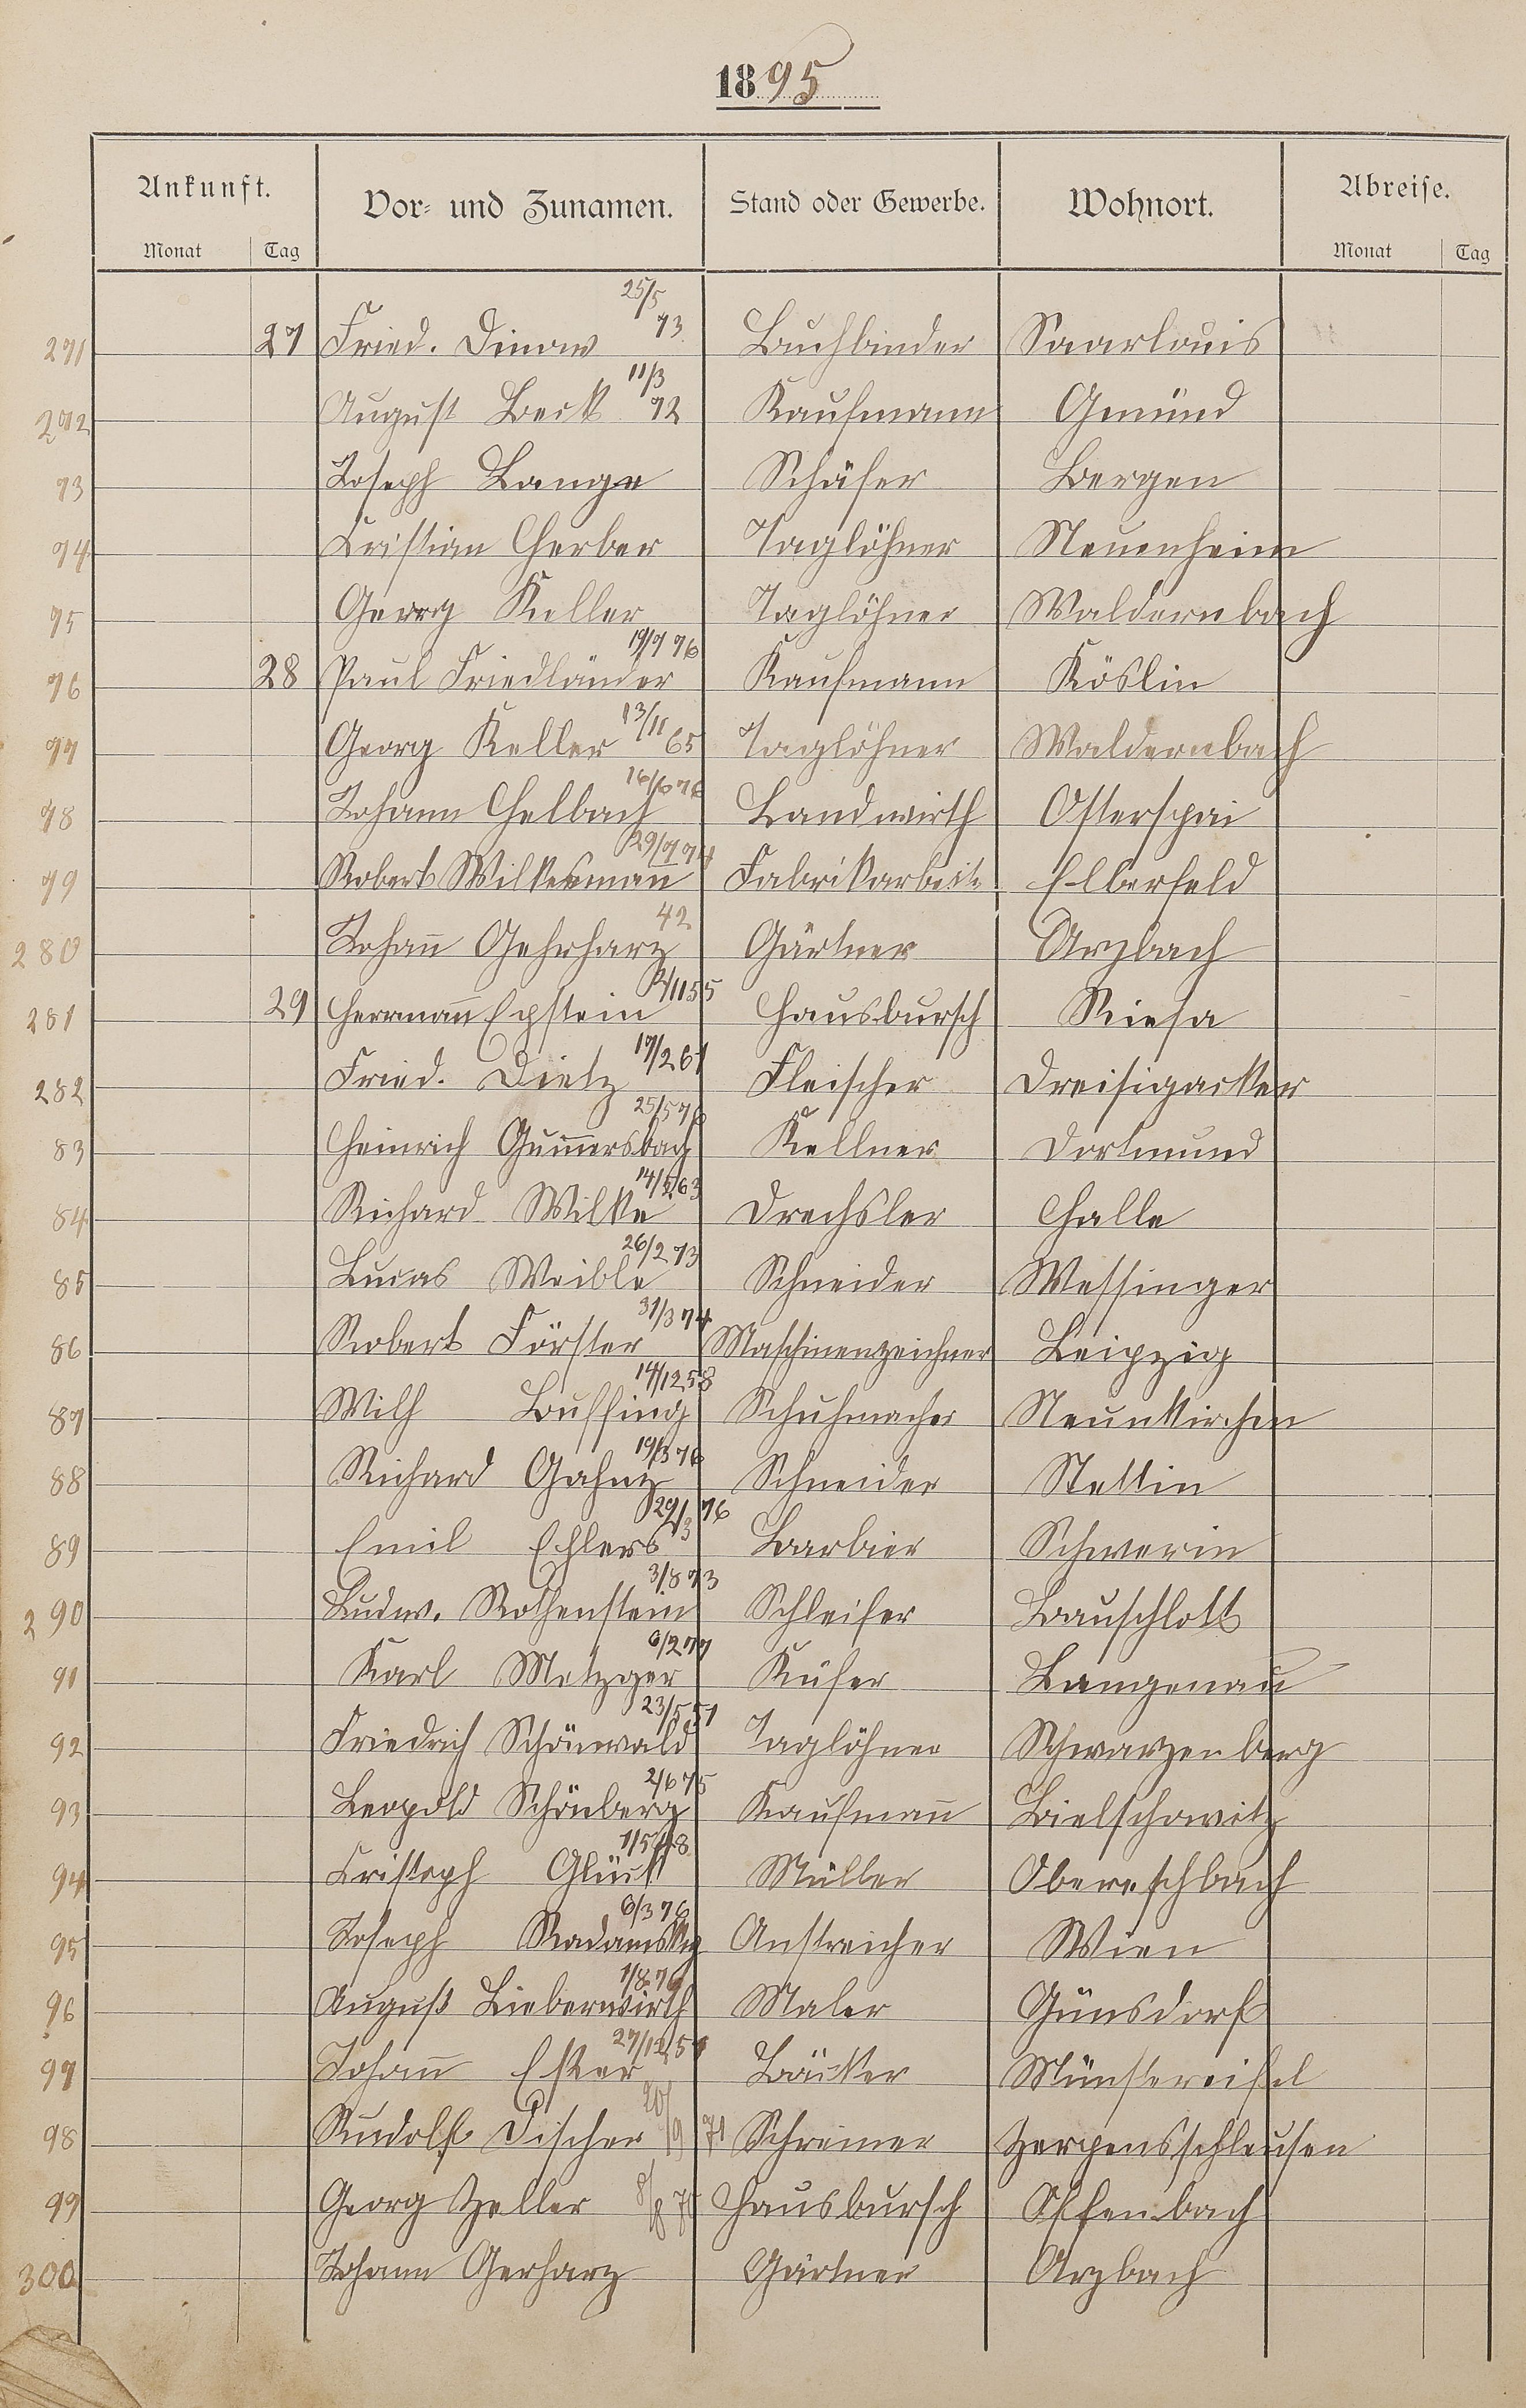 1895
Ankunft. Vor- und Zunamen. Stand oder Gewerbe. Wohnort. Abreise.
Monat Tag Monat Tag
271 27 Fried. Dinow 25/5 73 Buchbinder Saarlouis
272 August Beck 11/3 72 Kaufmann Gemünd
73 Joseph Lange Schäfer Bergen
74 Cristian Herber Taglöhner Neuenheim
75 Georg Keller Taglöhner Waldernbach
76 28 Paul Friedländer 19/7 76 Kaufmann Köslin
77 Georg Keller 13/11 65 Taglöhner Waldernbach
78 Johann Helbach 16/6 76 Landwirth Osterspai
79 Robert Wilkesmann 29/7 74 Fabrikarbeite Elberfeld
280 Johann Gehrharz 42 Gärtner Arzbach
281 29 Herrmann Epstein 2/11 55 Hausbursch Riesa
282 Fried. Dietz 17/2 61 Fleischer Dreisigacker
83 Heinrich Gummersbach 25/5 76 Kellner Dortmund
84 Richard Wilke 14/2 63 Drechsler Halle
85 Lucas Weible 26/2 73 Schneider Wessinger
86 Robert Förster 31/3 74 Maschinenzeichner Leipzig
87 Wilh Bussing 14/12 58 Schuhmacher Neunkirchen
88 Richard Gahnz 19/3 76 Schneider Stettin
89 Emil Ehlers 29/3 76 Barbier Schwerin
290 Ludw. Rothenstein 3/8 73 Schleifer Bauschlott
91 Karl Metzger 6/2 77 Küfer Langenau
92 Friedrich Schönwald 23/5 51 Taglöhner Schwarzenberg
93 Leopold Schönberg 2/6 75 Kaufmann Bielschowitz
94 Cristoph Glück 1/5 48 Müller Obereschbach
95 Joseph Radamsky 6/3 76 Anstreicher Wien
96 August Lieberwirth 1/8 76 Maler Günsdorf
97 Johann Esser 27/12 57 Bäcker Münstereifel
98 Rudolf Discher 20/9 71 Schreiner Zerpensschleusen
99 Georg Zeller 8/8 75 Hausbursch Offenbach
300 Johann Gerharz Gärtner Arzbach